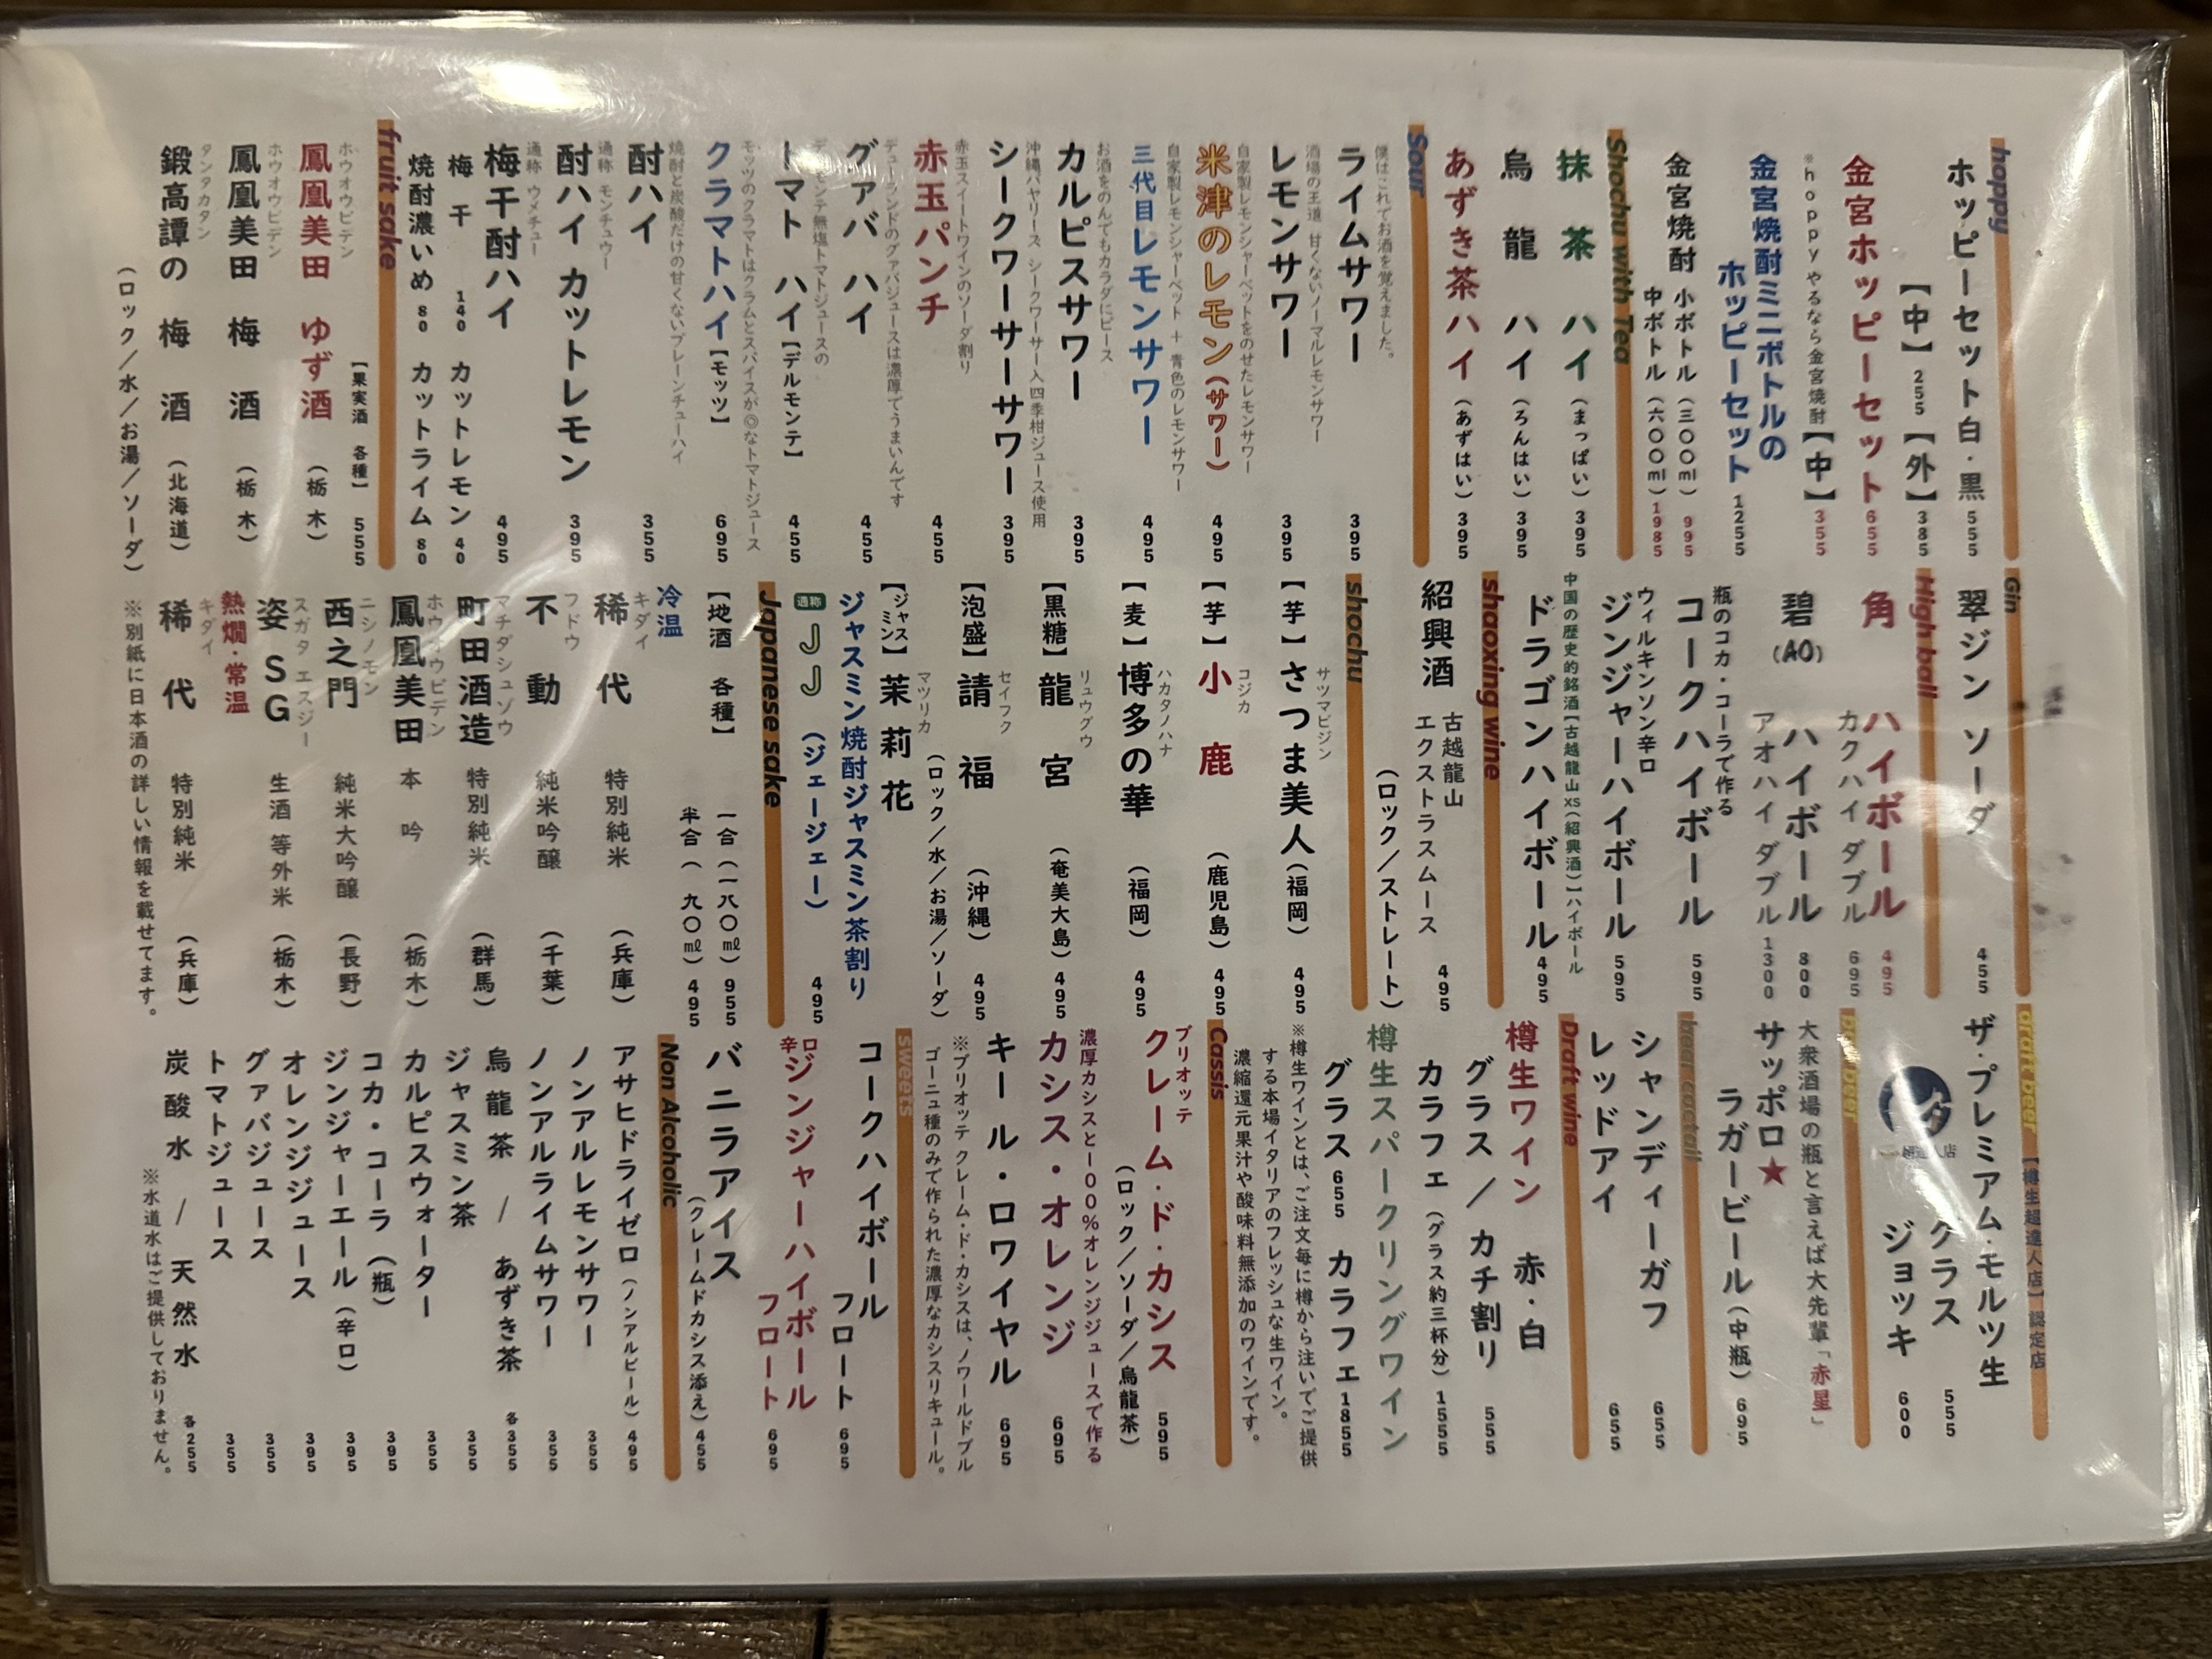 hoppy
ホッピーセット白・黒 555
【中】255【外】385
金宮ホッピーセット 655
※hoppyやるなら金宮焼酎【中】355
金宮焼酎ミニボトルの
ホッピーセット 1255
金宮焼酎 小ボトル(三〇〇ml)995
中ボトル(六〇〇ml)1985
Shochu with Tea
抹茶ハイ(まっぱい)395
烏龍ハイ(ろんはい)395
あずき茶ハイ(あずはい)395
Sour
僕はこれでお酒を覚えました。
ライムサワー 395
酒場の王道 甘くないノーマルレモンサワー
レモンサワー 395
自家製レモンシャーベットをのせたレモンサワー
米津のレモン(サワー) 495
自家製レモンシャーベット + 青色のレモンサワー
三代目レモンサワー 495
お酒をのんでもカラダにピース
カルピスサワー 395
沖縄バヤリース シークワーサー入四季柑ジュース使用
シークワーサーサワー 395
赤玉スイートワインのソーダ割り
赤玉パンチ 455
デューランドのグァバジュースは濃厚でうまいんです
グァバハイ 455
デルモンテ無塩トマトジュースの
トマトハイ【デルモンテ】 455
モッツのクラマトはクラムとスパイスが◎なトマトジュース
クラマトハイ【モッツ】 695
焼酎と炭酸だけの甘くないプレーンチューハイ
酎ハイ 355
通称 モンチュウー
酎ハイ カットレモン 395
通称 ウメチュー
梅干酎ハイ 495
梅干 140 カットレモン 40
焼酎濃いめ 80 カットライム 80
fruit sake
【果実酒 各種】 555
ホウオウビデン
鳳凰美田 ゆず酒 (栃木)
ホウオウビデン
鳳凰美田 梅酒 (栃木)
タンタカタン
鍛高譚の 梅酒 (北海道)
(ロック/水/お湯/ソーダ)
Gin
翠ジン ソーダ 455
High ball
角 ハイボール 495
カクハイ ダブル 695
碧(AO) ハイボール 800
アオハイ ダブル 1300
瓶のコカ・コーラで作る
コークハイボール 595
ウィルキンソン辛口
ジンジャーハイボール 595
中国の歴史的銘酒【古越龍山XS(紹興酒)】ハイボール
ドラゴンハイボール 495
shaoxing wine
紹興酒 古越龍山
エクストラスムース 495
(ロック/ストレート)
shochu
サツマビジン
【芋】さつま美人(福岡) 495
コジカ
【芋】小鹿(鹿児島) 495
ハカタノハナ
【麦】博多の華(福岡) 495
リュウグウ
【黒糖】龍宮(奄美大島) 495
セイフク
【泡盛】請福(沖縄) 495
(ロック/水/お湯/ソーダ)
マツリカ
【ジャスミン】茉莉花
ジャスミン焼酎ジャスミン茶割り
通称 JJ(ジェージェー) 495
Japanese sake
【地酒 各種】 一合(一八〇ml) 955
半合( 九〇ml) 495
冷温
キダイ
稀代 特別純米(兵庫)
フドウ
不動 純米吟醸(千葉)
マチダシュゾウ
町田酒造 特別純米(群馬)
ホウオウビデン
鳳凰美田 本吟(栃木)
ニシノモン
西之門 純米大吟醸(長野)
スガタ エスジー
姿SG 生酒 等外米(栃木)
熱燗・常温
キダイ
稀代 特別純米(兵庫)
※別紙に日本酒の詳しい情報を載せてます。
draft beer 【樽生超達人店】認定店
ザ・プレミアム・モルツ生
グラス 555
ジョッキ 600
超達人店
大衆酒場の瓶と言えば大先輩「赤星」
サッポロ★
ラガービール(中瓶) 695
beer coctail
シャンディーガフ 655
レッドアイ 655
Draft wine
樽生ワイン 赤・白
グラス / カチ割り 555
カラフェ(グラス約三杯分) 1555
樽生スパークリングワイン
グラス 655 カラフェ 1855
※樽生ワインとは、ご注文毎に樽から注いでご提供
する本場イタリアのフレッシュな生ワイン。
濃縮還元果汁や酸味料無添加のワインです。
Cassis
ブリオッテ
クレーム・ド・カシス 595
(ロック/ソーダ/烏龍茶)
濃厚カシスと100%オレンジジュースで作る
カシス・オレンジ 695
キール・ロワイヤル 695
※ブリオッテ クレーム・ド・カシスは、ノワールドブル
ゴーニュ種のみで作られた濃厚なカシスリキュール。
sweets
コークハイボール
フロート 695
辛口ジンジャーハイボール
フロート 695
バニラアイス
(クレームドカシス添え) 455
Non Alcoholic
アサヒドライゼロ(ノンアルビール) 495
ノンアルレモンサワー 355
ノンアルライムサワー 355
烏龍茶 / あずき茶 各355
ジャスミン茶 355
カルピスウォーター 355
コカ・コーラ(瓶) 395
ジンジャーエール(辛口) 395
オレンジジュース 395
グァバジュース 355
トマトジュース 355
炭酸水 / 天然水 各255
※水道水はご提供しておりません。